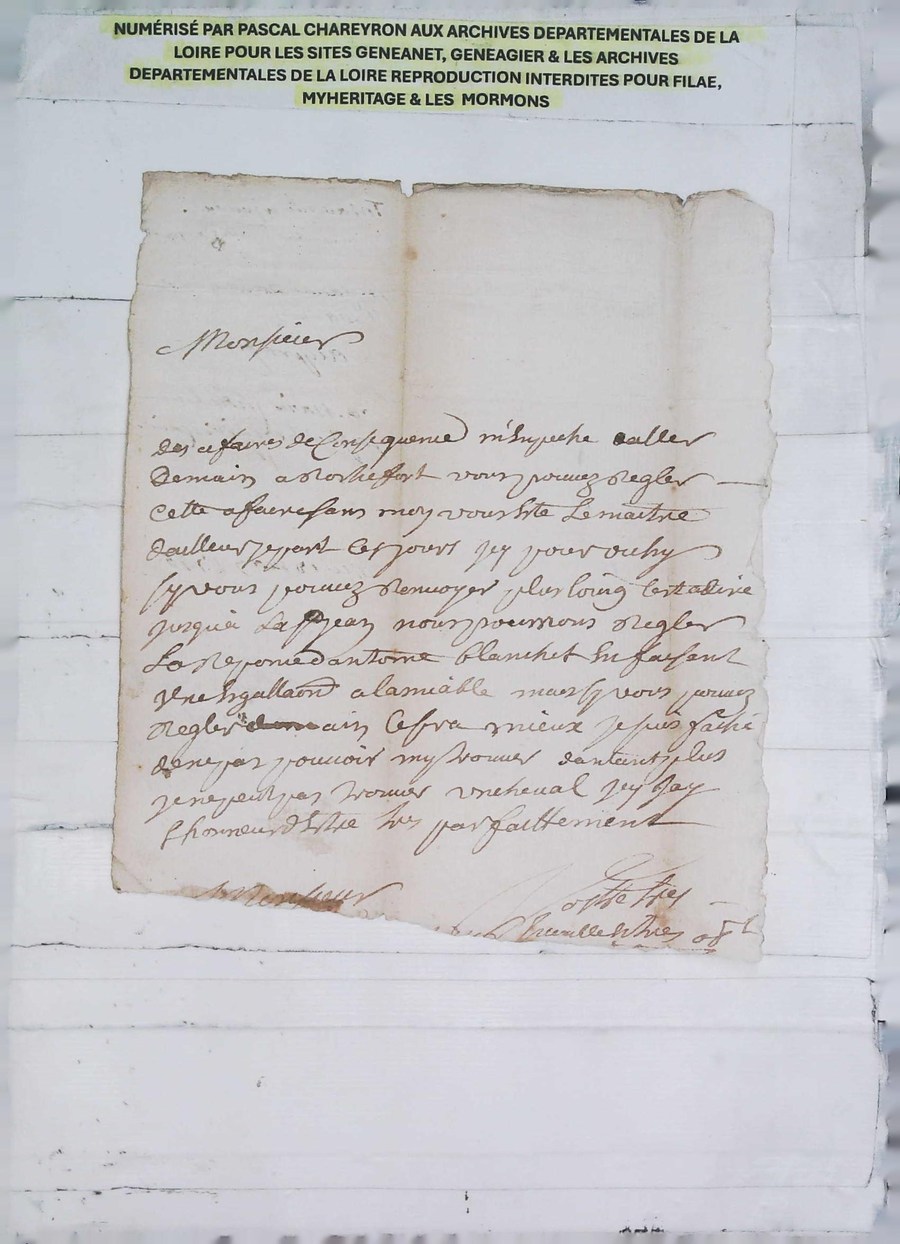 NUMÉRISÉ PAR PASCAL CHAREYRON AUX ARCHIVES DEPARTEMENTALES DE LA
LOIRE POUR LES SITES GENEANET, GENEAGIER & LES ARCHIVES
DEPARTEMENTALES DE LA LOIRE REPRODUCTION INTERDITES POUR FILAE,
MYHERITAGE & LES MORMONS
Monsieur
des afaires de Consequence m'Enpeche daller
Demain a Rochefort vous pouvez Regler
Cette afaire sans moy vous Ete Le maitre
dailleur je part Ces jours
sy vous pouvez Renvoyer plus loing Cest a dire
jusqua La St jean nous pourrons Regler
La antoine blanchet En faisant
Une a lamiable mais sy vous pouvez
Regler demain Ce sera mieux je suis faché
de ne pas pouvoir my trouver dautant plus
je ne peut pas trouver un cheval jay
Lhonneur dEstre tres parfaittement
Monsieur
Vostre tres
humble Et tres